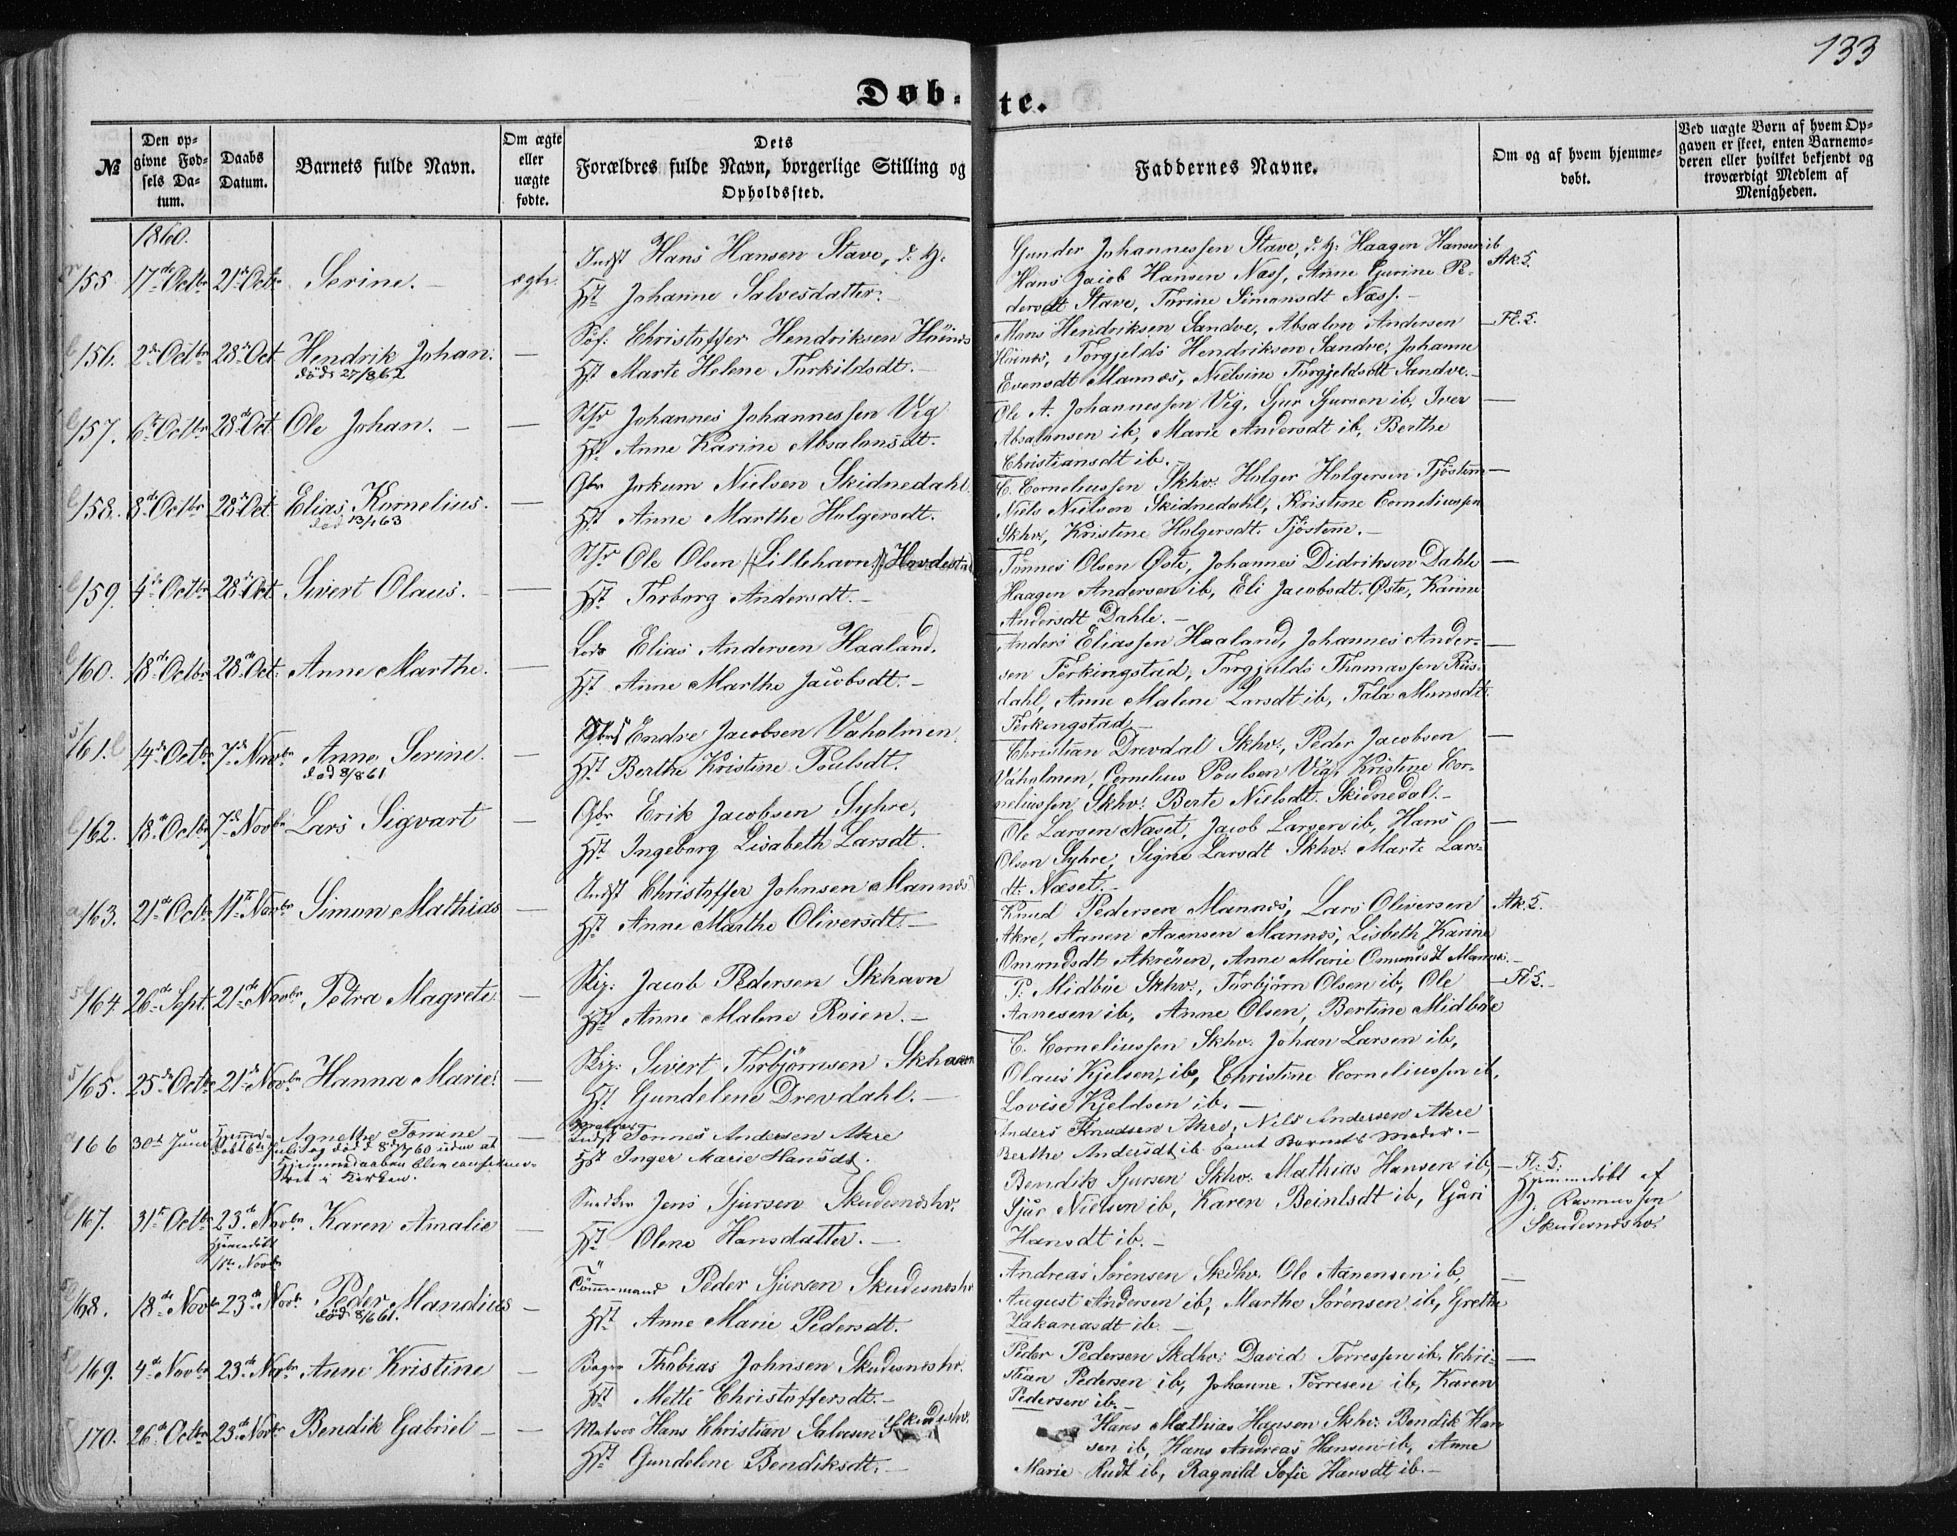 133
Døb-te.
№
Den opgivne Fødsels Datum.
Daabs Datum.
Barnets fulde Navn.
Om ægte eller uægte fødte.
Dets Forældres fulde Navn, borgerlige Stilling og Opholdssted.
Faddernes Navne.
Om og af hvem hjemmedøbt.
Ved uægte Børn af hvem Opgaven er skeet, enten Barnemoderen eller hvilket bekjendt og troværdigt Medlem af Menigheden.
1860.
155 17de Octbr 21de Octbr Serine. ægte.
Indst Hans Hansen Stave, d. y.
Hst Johanne Salvesdatter.
Gunder Johannessen Stave, d. y. Haagen Hansen ib
Hans Jacob Hansen Næss, Anne Gurine Pe-
dersdt Stave, Torine Simonsdt Næss.
Ak. S.
156. 2de Octbr 28de Oct. Hendrik Johan. —
död 27/8 62
Christoffer Hendriksen Höines
Hst Marte Helene Torkildsdt.
Mons Hendriksen Sandve, Absalon Andersen
Höines, Torgjelds Hendriksen Sandve, Johanne
Evensdt Mannes, Nielsine Torgjeldsdt Sandve.
Fl. S.
157. 6te Octbr 28de Oct. Ole Johan. —
Johannes Johannessen Vig
Hst Anne Karine Absalonsdt.
Ole A. Johannessen Vig, Sjur Sjursen ib, Iver
Absalonsen ib, Marie Andersdt ib, Berthe
Christiansdt ib.
158. 8de Octbr 28de Oct. Elias Kornelius. —
död 13/1 63
Gbr Jokum Nielsen Skidnedahl
Hst Anne Marthe Holgersdt.
C. Corneliussen Skhv. Holger Holgersen Tjöstem
Nils Nielsen Skidnedahl, Kristine Corneliussen
Skhv, Kristine Holgersdt Tjöstem.
159. 4de Octbr 28de Oct. Sivert Olaus. —
Ole Olsen (Lillehavn)
Hst Torborg Andersdt.
Tönnes Olsen Öste, Johannes Didriksen Dahle
Haagen Andersen ib, Eli Jacobsdt. Öste, Karine
Andersdt Dahle.
160. 18de Octbr 28de Oct. Anne Marthe. —
Elias Andersen Haaland.
Hst Anne Marthe Jacobsdt.
Anders Eliassen Haaland, Johannes Ander-
sen Ferkingstad, Torgjelds Thomassen
dahl, Anne Malene Larsdt ib, Tala Monsdt
Ferkingstad
161. 14de Octbr 7de Novbr Anne Serine. —
död 8/8 61
Endre Jacobsen Vaholmen.
Hst Berthe Kristine Poulsdt.
Christian Drevdal Skhv, Peder Jacobsen
Vaholmen, Cornelius Poulsen Vig, Kristine Cor-
neliussen Skhv. Berte Nielsdt. Skidnedal.
162. 18de Octbr 7de Novbr Lars Sigvart —
Gbr Erik Jacobsen Syhre,
Hst Ingeborg Lisabeth Larsdt.
Ole Larsen Næset, Jacob Larsen ib, Hans
Olsen Syhre, Signe Larsdt Skhv. Marte Lars-
dt. Næset.
163. 21de Octbr 11te Novbr Simon Mathias —
Indst Christoffer Johnsen Mannes
Hst Anne Marthe Oliversdt.
Knud Pedersen Mannes, Lars Oliversen
Akre, Aanen Aanensen Mannes, Lisbeth Karine
Omundsdt Akrösen, Anne Marie Omundsdt Mannes.
Ak. S.
164. 26de Sept. 21de Novbr Petra Magrete —
Jacob Pedersen Skhavn
Hst Anne Malene Roien.
P. Midböe Skhv., Torbjörn Olsen ib, Ole
Aanesen ib, Anne Olsen, Bertine Midböe
Fl. S.
165. 25de Octbr 21de Novbr Hanna Marie. —
Sivert Torbjörnsen Skhavn
Hst Gundelene Drevdahl.
C. Corneliussen Skhv. Johan Larsen ib,
Olaus Kjelsen, ib, Christine Corneliussen ib,
Lovise Kjeldsen ib.
166 30te Juni Hjemme-döbt 6te Agnethe Tomine
Juli og död d 8/7 60 uden at
Hjemmedaaben blev confirme-
ret i Kirken.
Indst Tönnes Andersen Akre
Hst Inger Marie Hansdt.
Anders Knudsen Akre, Nils Andersen Akre
Berthe Andersdt ib samt Barnets Moder.
167. 31te Octbr 23de Novbr Karen Amalie —
Hjemmedöbt
1te Novbr
Snedker Jens Sjursen Skudesneshv.
Hst Olene Hansdatter.
Bendik Sjursen Skhv. Mathias Hansen ib,
Sjur Nielsen ib, Karen Beintsdt ib, Guri
Hansdt ib.
Fl. S.
Hjemmedöbt af
J. Rasmussen
Skudesneshv.
168. 18de Novbr 23de Novbr Peder Mandius —
död 8/6 61.
Tömmermand Peder Sjursen Skudesneshv
Hst Anne Marie Pedersdt.
Andreas Sörensen Skdhv. Ole Aanensen ib,
August Andersen ib, Marthe Sörensen ib, Grethe
Zakariasdt ib.
169. 4de Novbr 23de Novbr Anne Kristine —
Bager Thobias Johnsen Skudesneshv.
Hst Mette Christoffersdt.
Peder Pedersen Skdhv. David Torressen ib, Chri-
stian Pedersen ib, Johanne Torresen ib, Karen
Pedersen ib.
170. 26de Octbr 23de Novbr Bendik Gabriel —
Matros Hans Christian Salvesen Skudeshv.
Hst Gundelene Bendiksdt.
Hans Mathias Hansen Skhv. Bendik Han
sen ib, Hans Andreas Hansen ib, Anne
Marie ib, Ragnild Sofie Hansdt ib.